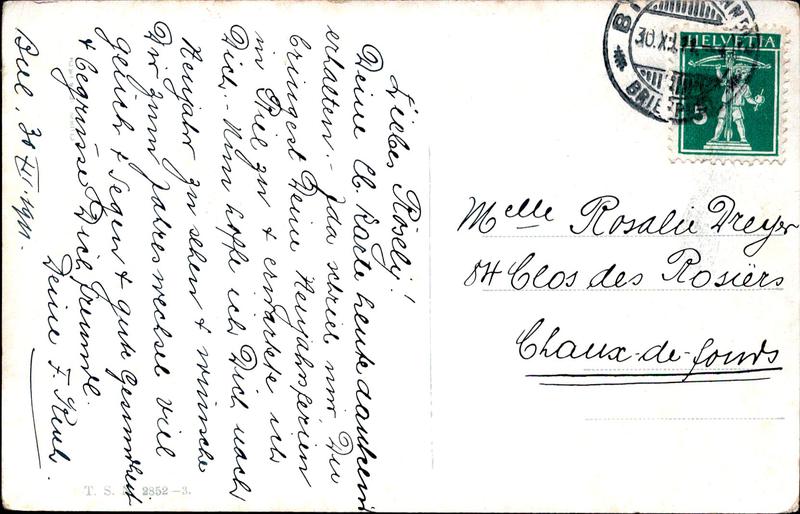 Liebes Rösely!
Deine lb. Karte heute dankend
erhalten. – Ida schrieb mir, Du
bringest Deine Neujahrsferien
in Biel zu & erwartete ich
Dich. – Nun hoffe ich Dich nach
Neujahr zu sehen & wünsche
Dir zum Jahreswechsel viel
Glück & Segen & gute Gesundheit
& begrüsse Dich freundl.
Deine F.
Biel, 30 XII. 1911.
T. S. N. 2852-3.
HELVETIA
5
BRIEF
Melle Rosalie Dreyer
84 Clos des Rosiers
Chaux-de-fonds